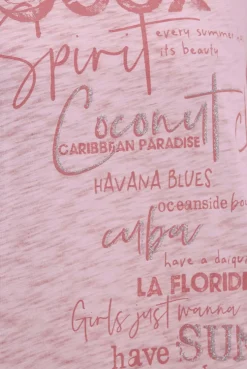 Spirit
every summer
its beauty
Coconut
CARIBBEAN PARADISE
HAVANA BLUES
oceanside
cuba
have a daiqu
LA FLORIDI
Girls just wanna
have SUN